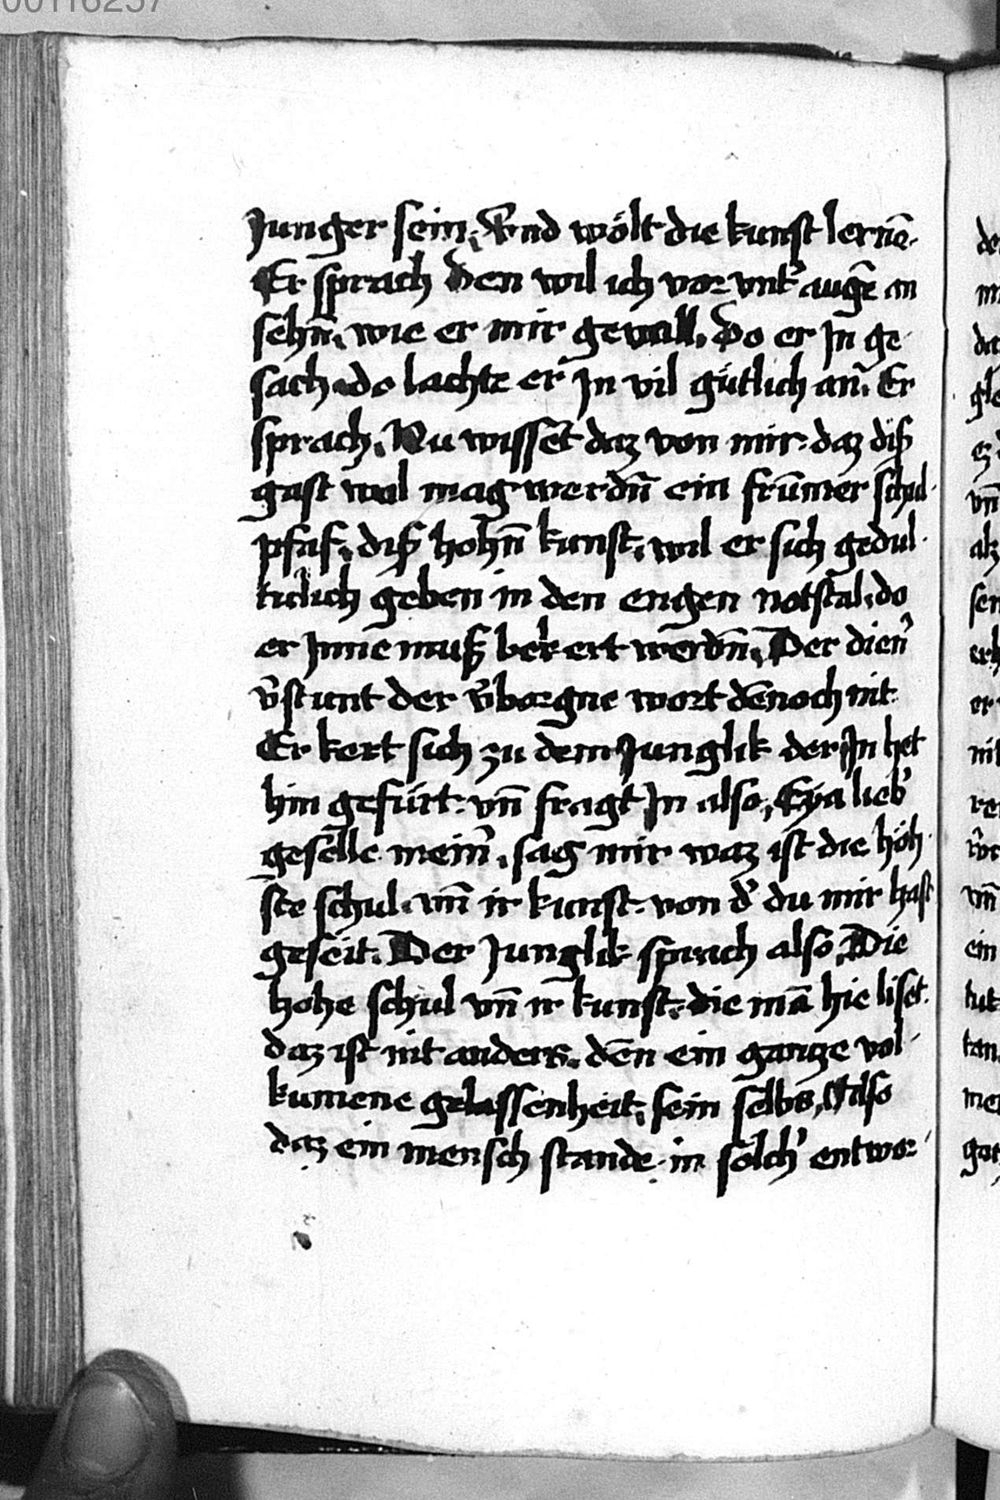 00116257
Junger sein, Vnd wölt die kunst lernē.
Er sprach den wil ich vor vnt' augē an
sehn̄, wie er mir gevall, Do er Jn ge
sach. do lachte er Jn vil gütlich an, Er
sprach, Nu wisset daz von mir. daz diß
gast wal mag werdn̄ ein frūmer schul
pfaf, diß hohn̄ kunst, wil er sich gedul
ticlich geben in den engen notstal, do
er Jnne muß bekert werdn̄, Der dien'
v̄stunt der v̄borgne wort dēnoch nit
Er kert sich zu dem Junglik der Jn het
hin gefürt. vn̄ fragt Jn also, Eya lieb'
geselle mein', sag mir waz ist die höh
ste schul. vn̄ ir kunst. von d' du mir hast
geseit. Der Junglik sprach also, Die
hohe schul vn̄ ir kunst. die mā hie liset.
daz ist nit anders. den ein gantze vol
kumene gelassenheit, sein selbs, Also
daz ein mensch stande. in sölch' entwor